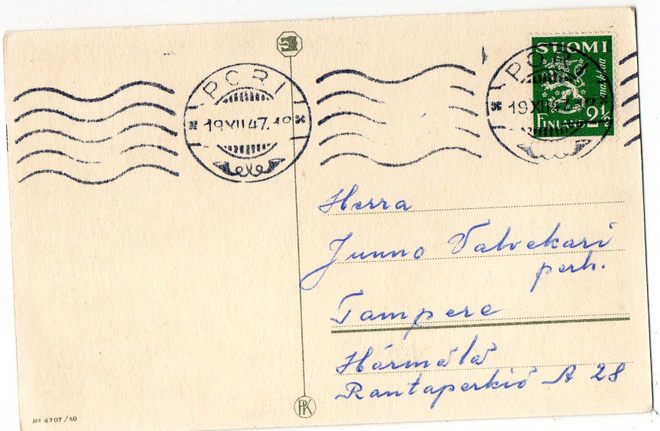 PORI
19.XII.47.19
PORI
19.XII.47.19
SUOMI
FINLAND 2½
Herra
Junno Valvekari
perh.
Tampere
Härmälä
Rantaperkiö A 28
PK
Nº 4707/10